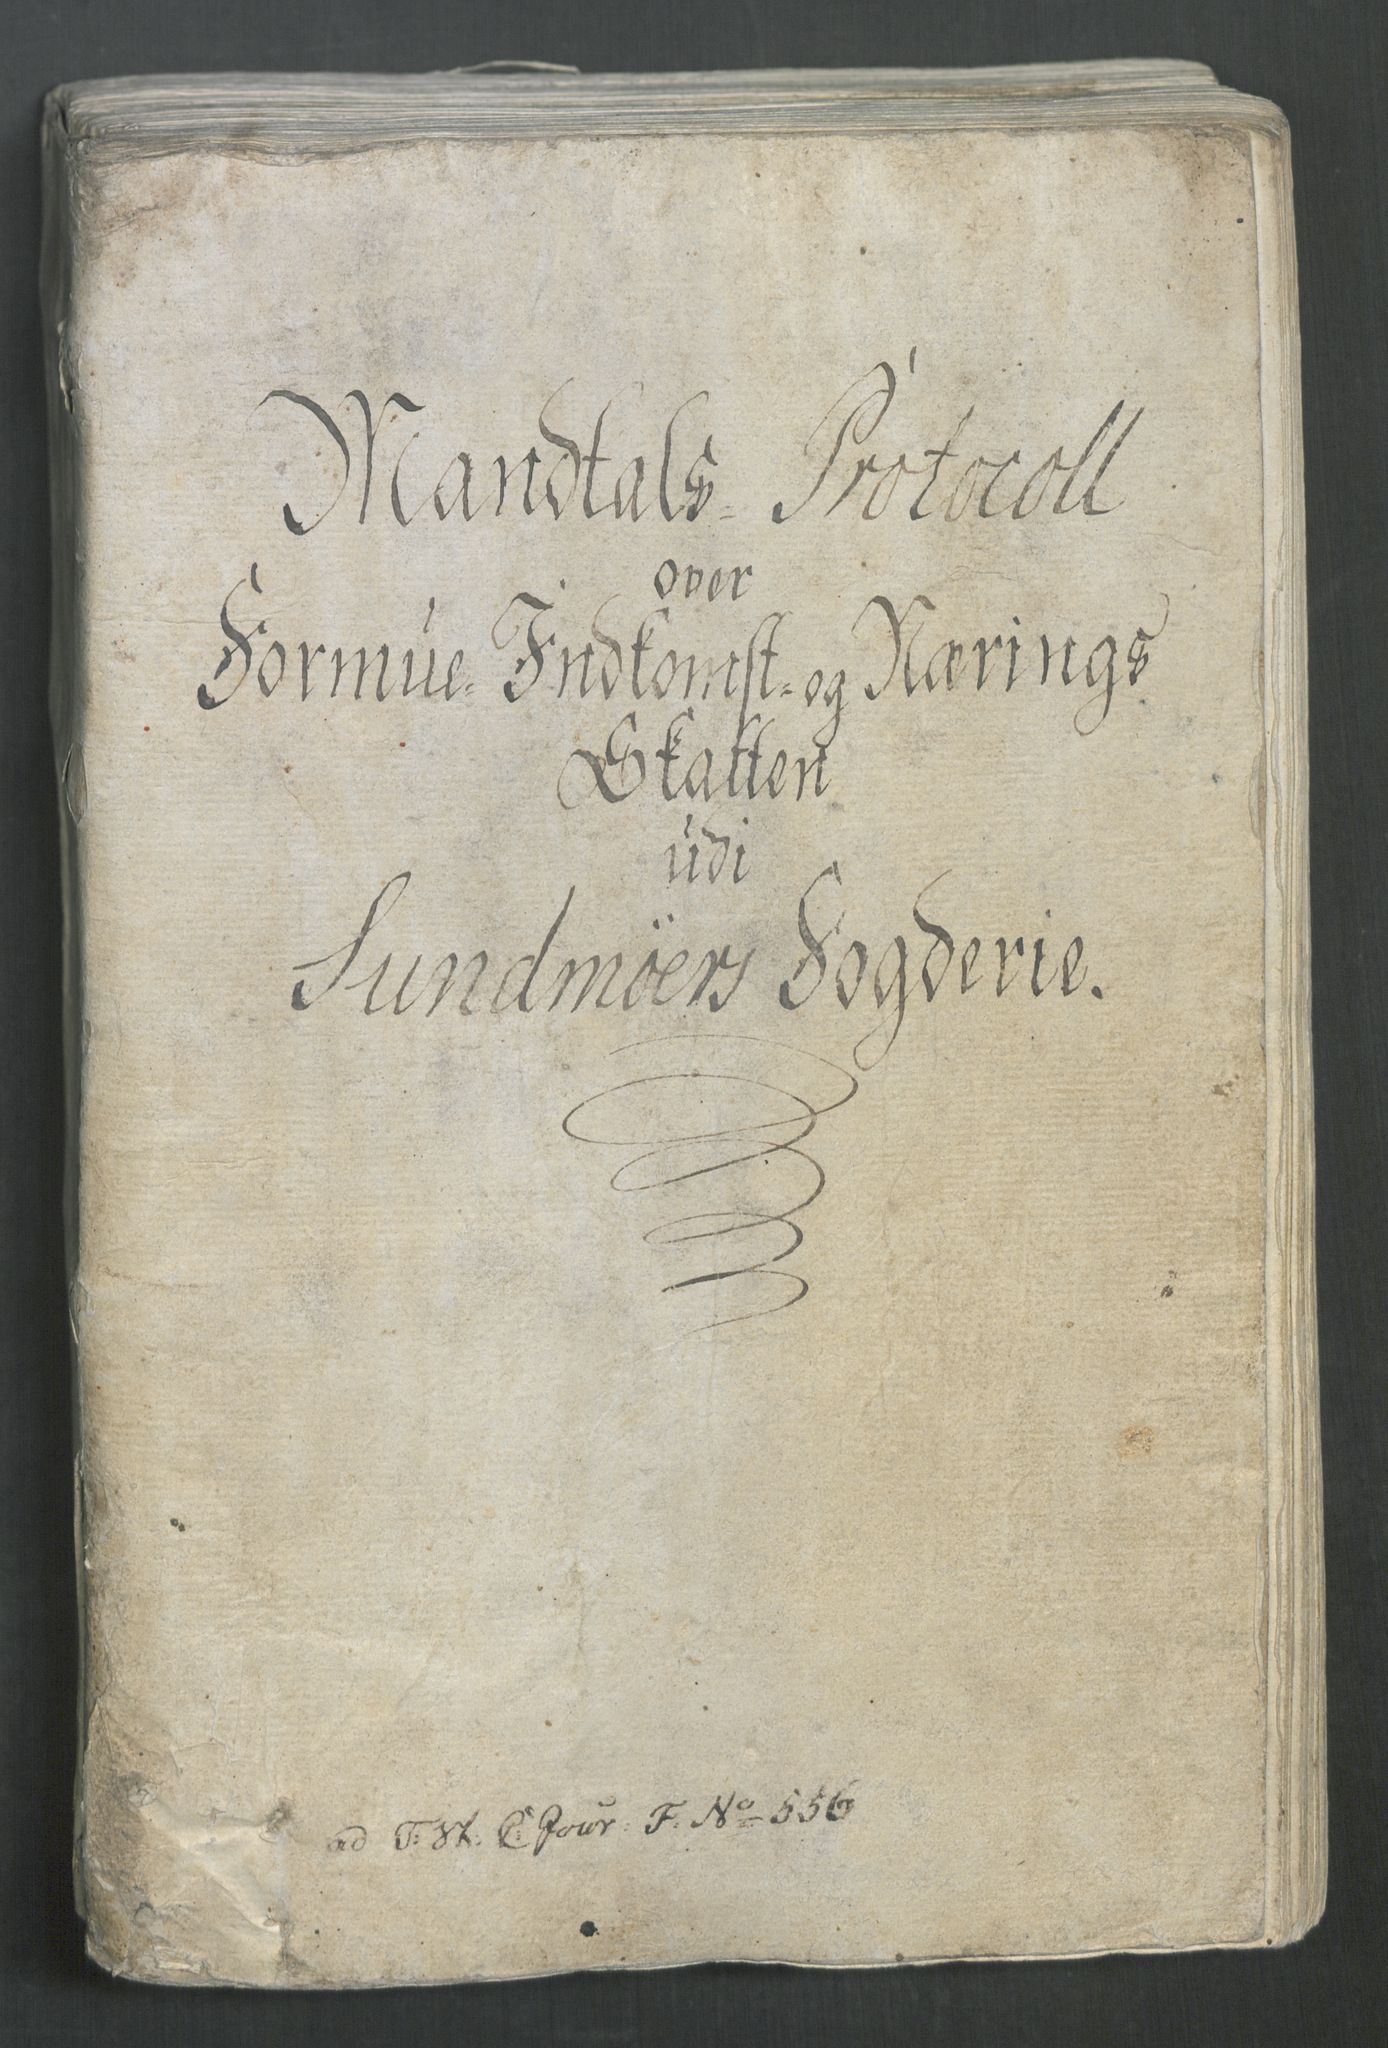 Mandtals= Protocoll
over
Formúe= Indkomst= og Nærings
Skatten
údi
Sundmöers Fogderie.
ad T: K: C: Jour: F. No 556